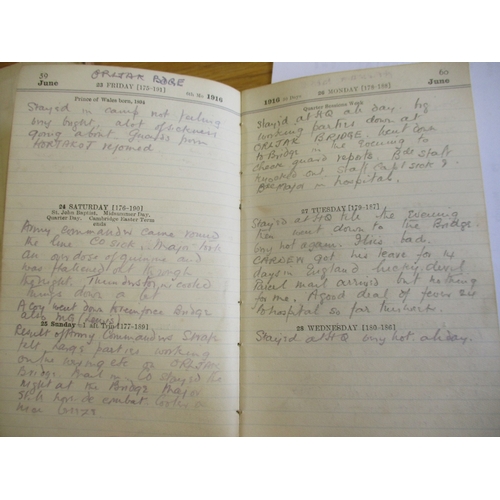 30
June
ORLJAK BDRE
23 FRIDAY [175-191]
6th Mo 1916
Prince of Wales born, 1894
Stayed in camp not feeling
very bright. alot of sickness
going about. Guards from
HORTAKOT rejoined
24 SATURDAY [176-190]
St. John Baptist. Midsummer Day.
Quarter Day. Cambridge Easter Term
ends
Army Commanders came round
the line CO SICK. Major took
an overdose of quinine and
was flattened out through
the night. Thunderstorm cooled
things down a lot
A Coy went down reenforce Bridge
also MG
25 Sunday 1 Aft Trin [177-189]
Result of Army Commanders
fell. Large parties working
on the wiring etc at ORLJAK
Bridge. CO stayed the
night at the Bridge Major
still hors de combat
near
1916 30 Days
26 MONDAY [178-188]
60
June
Quarter Sessions Week
Stayed at HQ all day. big
working parties down at
ORLJAK BRIDGE. Went down
to Bridge in the evening to
check guard reports. Bde Staff
knocked out. Staff Capt sick &
Bde Major in hospital.
27 TUESDAY [179-187]
Stayed at HQ till the evening
then went down to the Bridge.
Very hot again. Flies bad.
CARDEN got his leave for
days in England lucky devil
Parcel mail arrived but nothing
for me. A good deal of fever
to hospital so far
28 WEDNESDAY [180-186]
Stayed at HQ very hot all day.